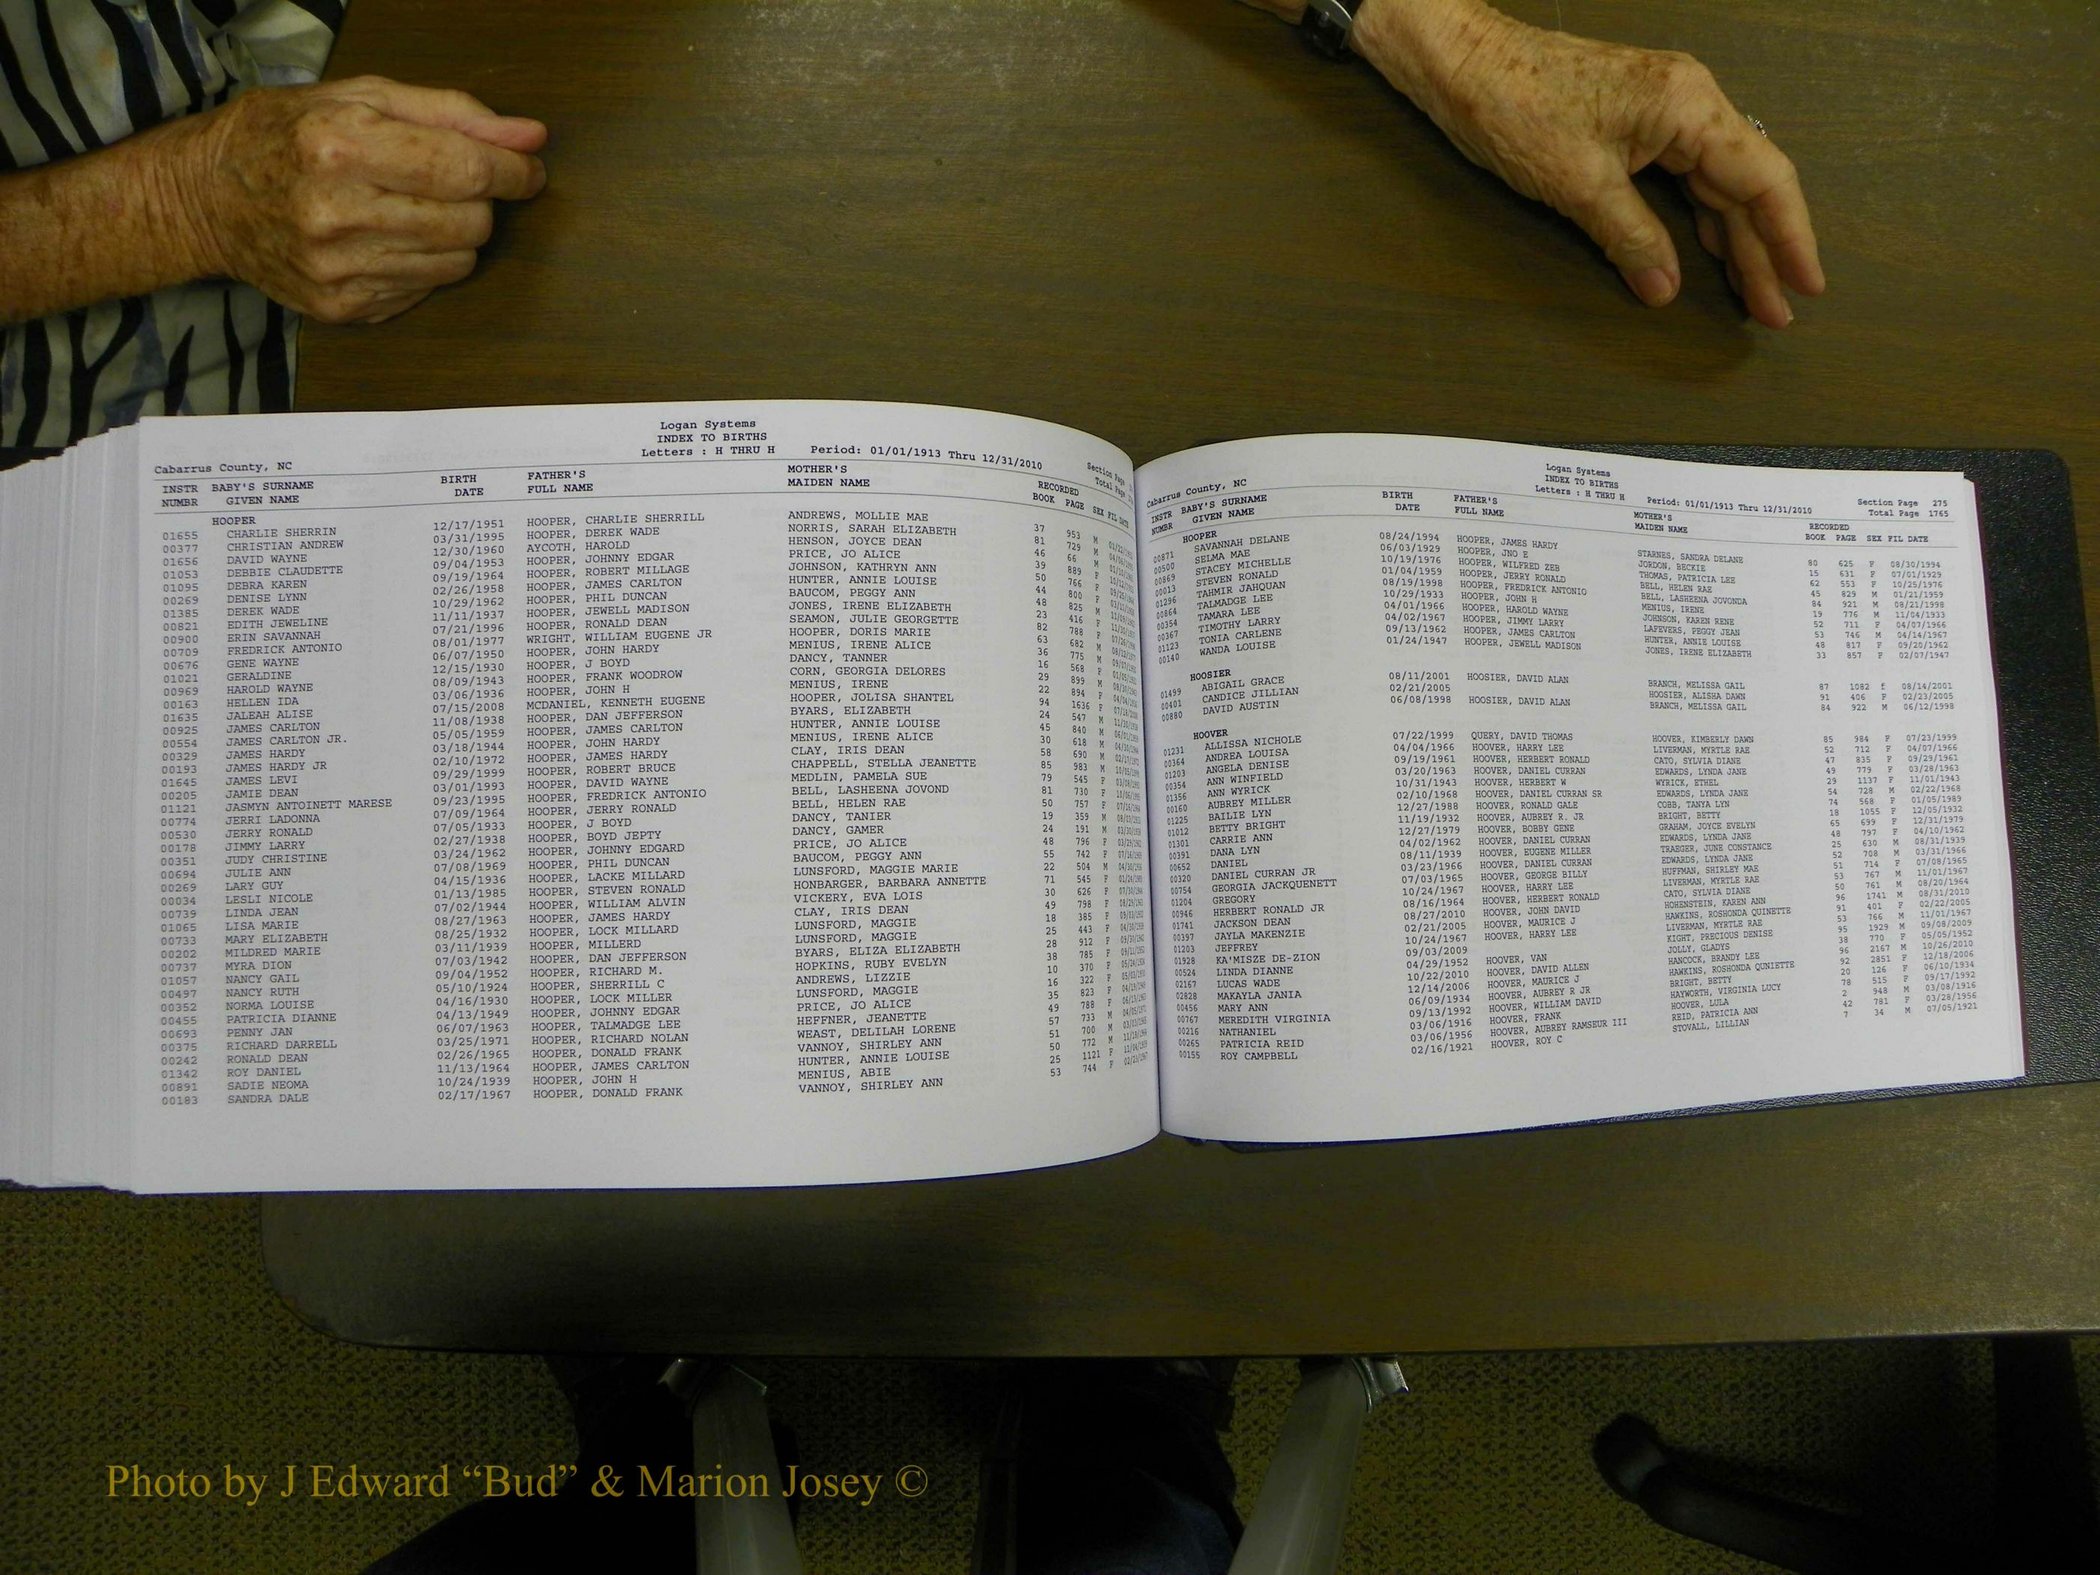 Logan Systems
INDEX TO BIRTHS
Cabarrus County, NC Letters : H THRU H Period: 01/01/1913 Thru 12/31/2010 Section Page
Total Page
INSTR BABY'S SURNAME BIRTH FATHER'S MOTHER'S RECORDED
NUMBR GIVEN NAME DATE FULL NAME MAIDEN NAME BOOK PAGE SEX FIL DATE
HOOPER
01655 CHARLIE SHERRIN 12/17/1951 HOOPER, CHARLIE SHERRILL ANDREWS, MOLLIE MAE 37 953 M
00377 CHRISTIAN ANDREW 03/31/1995 HOOPER, DEREK WADE NORRIS, SARAH ELIZABETH 81 729 M
01656 DAVID WAYNE 12/30/1960 AYCOTH, HAROLD HENSON, JOYCE DEAN 46 66 M
01053 DEBBIE CLAUDETTE 09/04/1953 HOOPER, JOHNNY EDGAR PRICE, JO ALICE 39 889 F
01095 DEBRA KAREN 09/19/1964 HOOPER, ROBERT MILLAGE JOHNSON, KATHRYN ANN 50 766 F
00269 DENISE LYNN 02/26/1958 HOOPER, JAMES CARLTON HUNTER, ANNIE LOUISE 44 800 F
01385 DEREK WADE 10/29/1962 HOOPER, PHIL DUNCAN BAUCOM, PEGGY ANN 48 825 M
00821 EDITH JEWELINE 11/11/1937 HOOPER, JEWELL MADISON JONES, IRENE ELIZABETH 23 416 F
00900 ERIN SAVANNAH 07/21/1996 HOOPER, RONALD DEAN SEAMON, JULIE GEORGETTE 82 788 F
00709 FREDRICK ANTONIO 08/01/1977 WRIGHT, WILLIAM EUGENE JR HOOPER, DORIS MARIE 63 682 M
00676 GENE WAYNE 06/07/1950 HOOPER, JOHN HARDY MENIUS, IRENE ALICE 36 775 M
01021 GERALDINE 12/15/1930 HOOPER, J BOYD DANCY, TANNER 16 568 F
00969 HAROLD WAYNE 08/09/1943 HOOPER, FRANK WOODROW CORN, GEORGIA DELORES 29 899 M
00163 HELLEN IDA 03/06/1936 HOOPER, JOHN H MENIUS, IRENE 22 894 F
01635 JALEAH ALISE 07/15/2008 MCDANIEL, KENNETH EUGENE HOOPER, JOLISA SHANTEL 94 1636 F
00925 JAMES CARLTON 11/08/1938 HOOPER, DAN JEFFERSON BYARS, ELIZABETH 24 547 M
00554 JAMES CARLTON JR. 05/05/1959 HOOPER, JAMES CARLTON HUNTER, ANNIE LOUISE 45 840 M
00329 JAMES HARDY 03/18/1944 HOOPER, JOHN HARDY MENIUS, IRENE ALICE 30 618 M
00193 JAMES HARDY JR 02/10/1972 HOOPER, JAMES HARDY CLAY, IRIS DEAN 58 690 M
01645 JAMES LEVI 09/29/1999 HOOPER, ROBERT BRUCE CHAPPELL, STELLA JEANETTE 85 983 M
00205 JAMIE DEAN 03/01/1993 HOOPER, DAVID WAYNE MEDLIN, PAMELA SUE 79 545 F
01121 JASMYN ANTOINETT MARESE 09/23/1995 HOOPER, FREDRICK ANTONIO BELL, LASHEENA JOVOND 81 730 F
00774 JERRI LADONNA 07/09/1964 HOOPER, JERRY RONALD BELL, HELEN RAE 50 757 F
00530 JERRY RONALD 07/05/1933 HOOPER, J BOYD DANCY, TANIER 19 359 M
00178 JIMMY LARRY 02/27/1938 HOOPER, BOYD JEPTY DANCY, GAMER 24 191 M
00351 JUDY CHRISTINE 03/24/1962 HOOPER, JOHNNY EDGARD PRICE, JO ALICE 48 796 F
00694 JULIE ANN 07/08/1969 HOOPER, PHIL DUNCAN BAUCOM, PEGGY ANN 55 742 F
00269 LARY GUY 04/15/1936 HOOPER, LACKE MILLARD LUNSFORD, MAGGIE MARIE 22 504 M
00034 LESLI NICOLE 01/13/1985 HOOPER, STEVEN RONALD HONBARGER, BARBARA ANNETTE 71 545 F
00739 LINDA JEAN 07/02/1944 HOOPER, WILLIAM ALVIN VICKERY, EVA LOIS 30 626 F
01065 LISA MARIE 08/27/1963 HOOPER, JAMES HARDY CLAY, IRIS DEAN 49 798 F
00733 MARY ELIZABETH 08/25/1932 HOOPER, LOCK MILLARD LUNSFORD, MAGGIE 18 385 F
00202 MILDRED MARIE 03/11/1939 HOOPER, MILLERD LUNSFORD, MAGGIE 25 443 F
00737 MYRA DION 07/03/1942 HOOPER, DAN JEFFERSON BYARS, ELIZA ELIZABETH 28 912 F
01057 NANCY GAIL 09/04/1952 HOOPER, RICHARD M. HOPKINS, RUBY EVELYN 38 785 F
00497 NANCY RUTH 05/10/1924 HOOPER, SHERRILL C ANDREWS, LIZZIE 10 370 F
00352 NORMA LOUISE 04/16/1930 HOOPER, LOCK MILLER LUNSFORD, MAGGIE 16 322 F
00455 PATRICIA DIANNE 04/13/1949 HOOPER, JOHNNY EDGAR PRICE, JO ALICE 35 823 F
00693 PENNY JAN 06/07/1963 HOOPER, TALMADGE LEE HEFFNER, JEANETTE 49 788 F
00375 RICHARD DARRELL 03/25/1971 HOOPER, RICHARD NOLAN WEAST, DELILAH LORENE 57 733 M
00242 RONALD DEAN 02/26/1965 HOOPER, DONALD FRANK VANNOY, SHIRLEY ANN 51 700 M
01342 ROY DANIEL 11/13/1964 HOOPER, JAMES CARLTON HUNTER, ANNIE LOUISE 50 772 M
00891 SADIE NEOMA 10/24/1939 HOOPER, JOHN H MENIUS, ABIE 25 1121 F
00183 SANDRA DALE 02/17/1967 HOOPER, DONALD FRANK VANNOY, SHIRLEY ANN 53 744 F
Logan Systems
INDEX TO BIRTHS
Cabarrus County, NC Letters : H THRU H Period: 01/01/1913 Thru 12/31/2010 Section Page 275
Total Page 1765
INSTR BABY'S SURNAME BIRTH FATHER'S MOTHER'S RECORDED
NUMBR GIVEN NAME DATE FULL NAME MAIDEN NAME BOOK PAGE SEX FIL DATE
HOOPER
00871 SAVANNAH DELANE 08/24/1994 HOOPER, JAMES HARDY STARNES, SANDRA DELANE 80 625 F 08/30/1994
00500 SELMA MAE 06/03/1929 HOOPER, JNO E JORDON, BECKIE 15 631 F 07/01/1929
00869 STACEY MICHELLE 10/19/1976 HOOPER, WILFRED ZEB THOMAS, PATRICIA LEE 62 553 F 10/25/1976
00013 STEVEN RONALD 01/04/1959 HOOPER, JERRY RONALD BELL, HELEN RAE 45 829 M 01/21/1959
01296 TAHMIR JAHQUAN 08/19/1998 HOOPER, FREDRICK ANTONIO BELL, LASHEENA JOVONDA 84 921 M 08/21/1998
00864 TALMADGE LEE 10/29/1933 HOOPER, JOHN H MENIUS, IRENE 19 776 M 11/04/1933
00354 TAMARA LEE 04/01/1966 HOOPER, HAROLD WAYNE JOHNSON, KAREN RENE 52 711 F 04/07/1966
00367 TIMOTHY LARRY 04/02/1967 HOOPER, JIMMY LARRY LAFEVERS, PEGGY JEAN 53 746 M 04/14/1967
01123 TONIA CARLENE 09/13/1962 HOOPER, JAMES CARLTON HUNTER, ANNIE LOUISE 48 817 F 09/20/1962
00140 WANDA LOUISE 01/24/1947 HOOPER, JEWELL MADISON JONES, IRENE ELIZABETH 33 857 F 02/07/1947
HOOSIER
01499 ABIGAIL GRACE 08/11/2001 HOOSIER, DAVID ALAN BRANCH, MELISSA GAIL 87 1082 f 08/14/2001
00401 CANDICE JILLIAN 02/21/2005 HOOSIER, ALISHA DAWN 91 406 F 02/23/2005
00880 DAVID AUSTIN 06/08/1998 HOOSIER, DAVID ALAN BRANCH, MELISSA GAIL 84 922 M 06/12/1998
HOOVER
01231 ALLISSA NICHOLE 07/22/1999 QUERY, DAVID THOMAS HOOVER, KIMBERLY DAWN 85 984 F 07/23/1999
00364 ANDREA LOUISA 04/04/1966 HOOVER, HARRY LEE LIVERMAN, MYRTLE RAE 52 712 F 04/07/1966
01203 ANGELA DENISE 09/19/1961 HOOVER, HERBERT RONALD CATO, SYLVIA DIANE 47 835 F 09/29/1961
00354 ANN WINFIELD 03/20/1963 HOOVER, DANIEL CURRAN EDWARDS, LYNDA JANE 49 779 F 03/28/1963
01356 ANN WYRICK 10/31/1943 HOOVER, HERBERT W WYRICK, ETHEL 29 1137 F 11/01/1943
00160 AUBREY MILLER 02/10/1968 HOOVER, DANIEL CURRAN SR EDWARDS, LYNDA JANE 54 728 M 02/22/1968
01225 BAILIE LYN 12/27/1988 HOOVER, RONALD GALE COBB, TANYA LYN 74 568 F 01/05/1989
01012 BETTY BRIGHT 11/19/1932 HOOVER, AUBREY R. JR BRIGHT, BETTY 18 1055 F 12/05/1932
01301 CARRIE ANN 12/27/1979 HOOVER, BOBBY GENE GRAHAM, JOYCE EVELYN 65 699 F 12/31/1979
00391 DANA LYN 04/02/1962 HOOVER, DANIEL CURRAN EDWARDS, LYNDA JANE 48 797 F 04/10/1962
00652 DANIEL 08/11/1939 HOOVER, EUGENE MILLER TRAEGER, JUNE CONSTANCE 25 630 M 08/31/1939
00320 DANIEL CURRAN JR 03/23/1966 HOOVER, DANIEL CURRAN EDWARDS, LYNDA JANE 52 708 M 03/31/1966
00754 GEORGIA JACQUENETT 07/03/1965 HOOVER, GEORGE BILLY HUFFMAN, SHIRLEY MAE 51 714 F 07/08/1965
01204 GREGORY 10/24/1967 HOOVER, HARRY LEE LIVERMAN, MYRTLE RAE 53 767 M 11/01/1967
00946 HERBERT RONALD JR 08/16/1964 HOOVER, HERBERT RONALD CATO, SYLVIA DIANE 50 761 M 08/20/1964
01741 JACKSON DEAN 08/27/2010 HOOVER, JOHN DAVID HOHENSTEIN, KAREN ANN 96 1741 M 08/31/2010
00397 JAYLA MAKENZIE 02/21/2005 HOOVER, MAURICE J HAWKINS, ROSHONDA QUINETTE 91 401 F 02/22/2005
01203 JEFFREY 10/24/1967 HOOVER, HARRY LEE LIVERMAN, MYRTLE RAE 53 766 M 11/01/1967
01928 KA'MISZE DE-ZION 09/03/2009 KIGHT, PRECIOUS DENISE 95 1929 M 09/08/2009
00524 LINDA DIANNE 04/29/1952 HOOVER, VAN JOLLY, GLADYS 38 770 F 05/05/1952
02167 LUCAS WADE 10/22/2010 HOOVER, DAVID ALLEN HANCOCK, BRANDY LEE 96 2167 M 10/26/2010
02828 MAKAYLA JANIA 12/14/2006 HOOVER, MAURICE J HAWKINS, ROSHONDA QUNIETTE 92 2851 F 12/18/2006
00456 MARY ANN 06/09/1934 HOOVER, AUBREY R JR BRIGHT, BETTY 20 126 F 06/10/1934
00767 MEREDITH VIRGINIA 09/13/1992 HOOVER, WILLIAM DAVID HAYWORTH, VIRGINIA LUCY 78 515 F 09/17/1992
00216 NATHANIEL 03/06/1916 HOOVER, FRANK HOOVER, LULA 2 948 M 03/08/1916
00265 PATRICIA REID 03/06/1956 HOOVER, AUBREY RAMSEUR III REID, PATRICIA ANN 42 781 F 03/28/1956
00155 ROY CAMPBELL 02/16/1921 HOOVER, ROY C STOVALL, LILLIAN 7 34 M 07/05/1921
Photo by J Edward “Bud” & Marion Josey ©